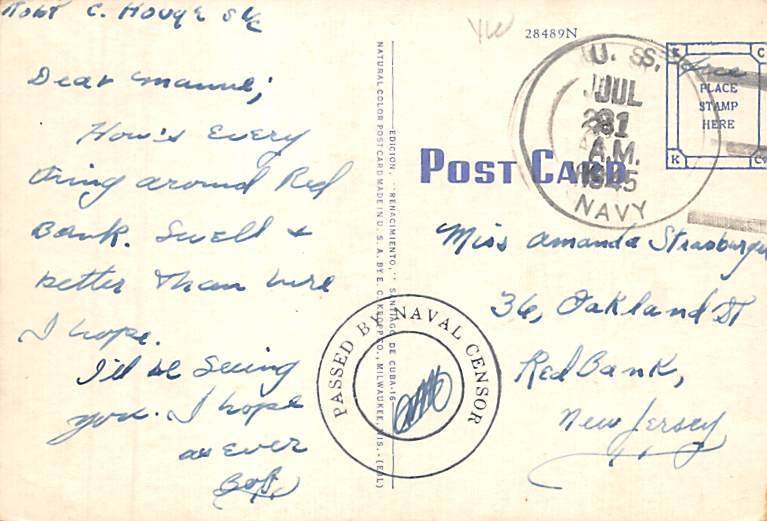 Robt C. Houge S 1/c
Dear Mannie;
How's Every
thing around Red
Bank. Swell &
better Than here
I hope.
I'll be Seeing
you. I hope
as ever
Bob
EDICION, "RENACIMIENTO," SANTIAGO DE CUBA-16
NATURAL COLOR POST CARD MADE IN U. S. A. BY E. C. KROPP CO., MILWAUKEE, WIS. - (EAL)
28489N
POST CARD
U. S.
JUL
A.M.
1945
NAVY
Free
K C
PLACE
STAMP
HERE
K Co
PASSED BY NAVAL CENSOR
Miss Amanda Strasburger
36, Oakland St
Red Bank,
New Jersey